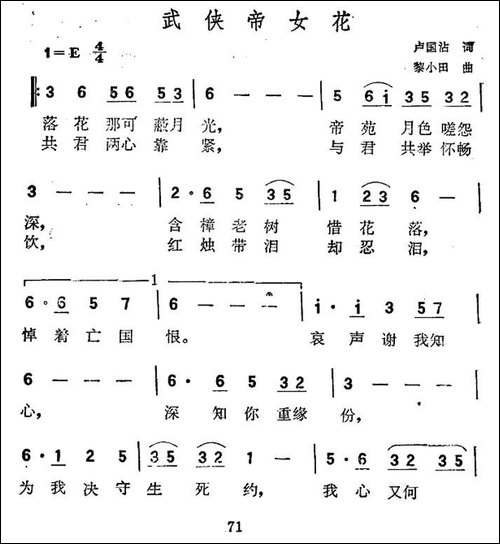 武侠帝女花
1=E 4/4
卢国沾 词
黎小田 曲
3 6 56 53 | 6 — — — | 5 6i 35 32 |
落花那可蔽月光， 帝苑月色嗟怨
共君两心靠紧， 与君共举怀畅
3 — — — | 2·6 5 35 | 1 23 6 — |
深， 含樟老树惜花落，
饮， 红烛带泪却忍泪，
1
6·6 5 7 | 6 — — — | i·i 3 57 |
悼着亡国恨。 哀声谢我知
6 — — — | 6·6 5 32 | 3 — — — |
心， 深知你重缘份，
6·1 2 5 | 35 32 1 — | 5·6 32 35 |
为我决守生死约， 我心又何
71